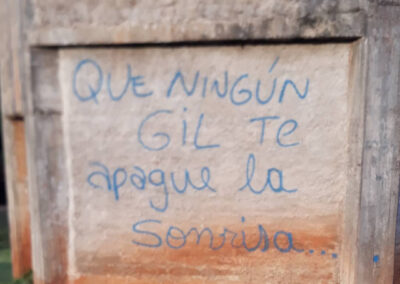 QUE NINGÚN
GIL Te
apague la
Sonrisa...